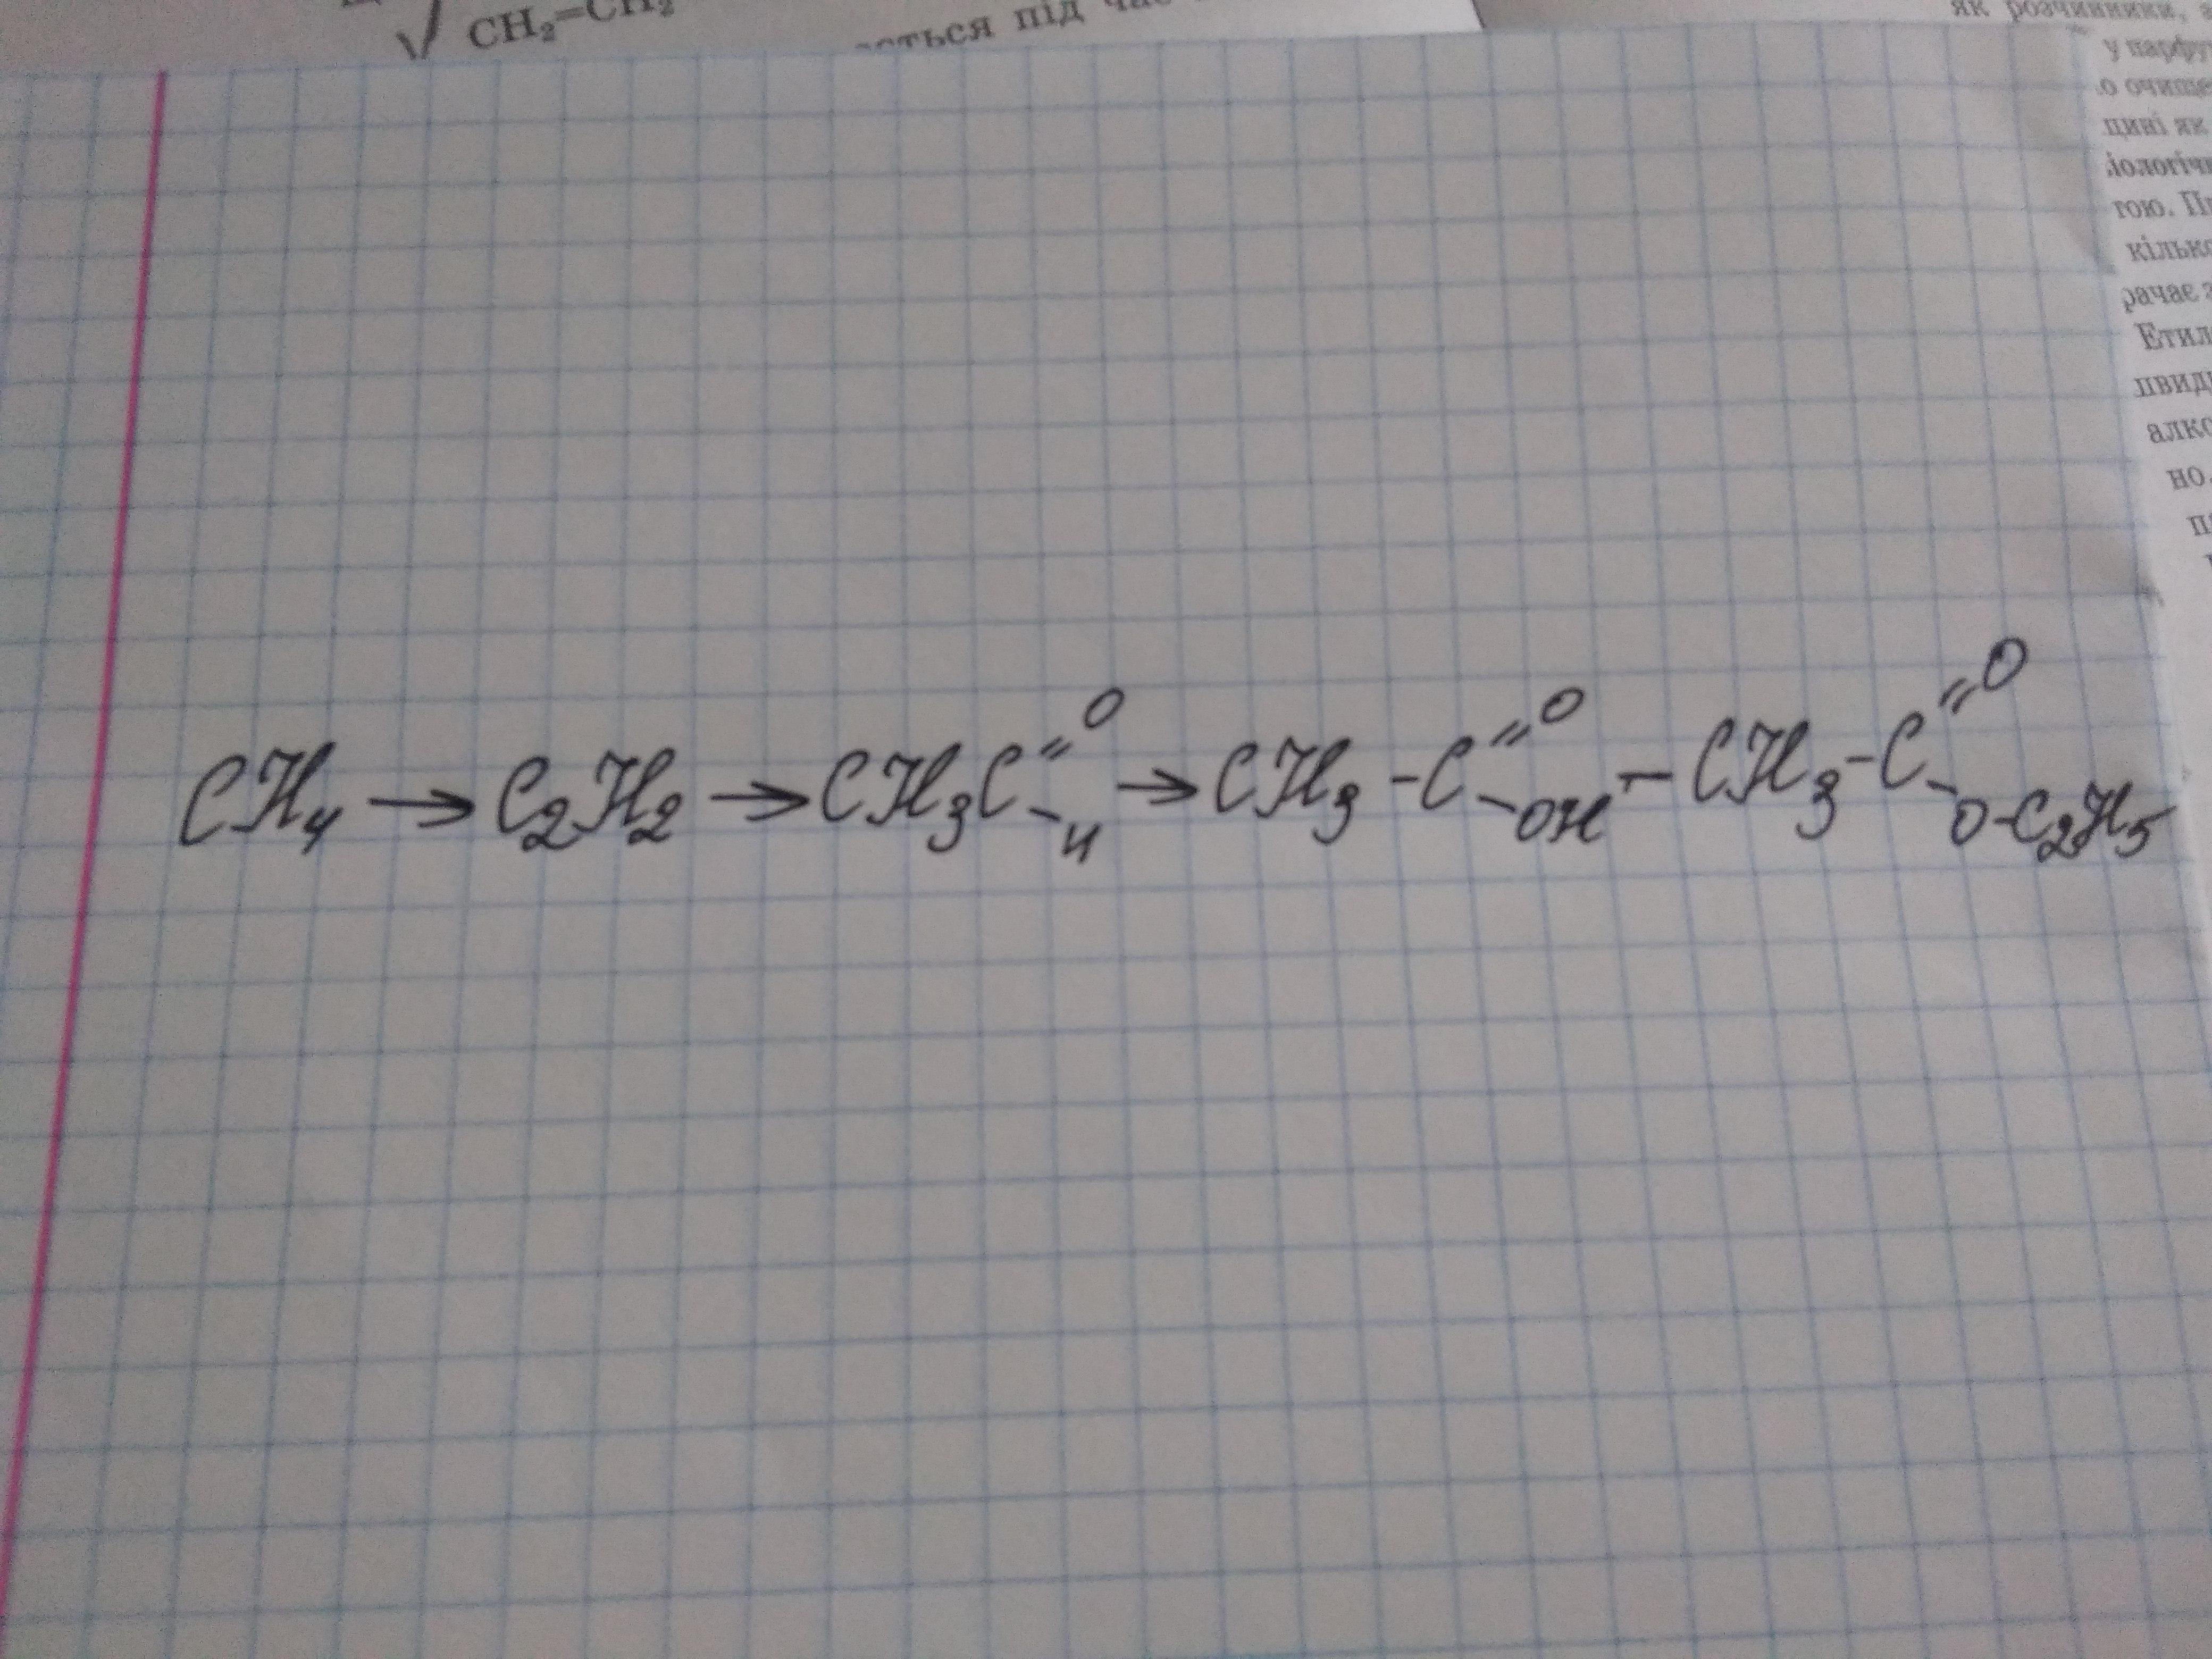 √ CH₂=CH₂
ється під час
як розчинники,
у парфу
о очище
цині як
іологічн
гою. Пр
кілько
рачає з
Етил
швидк
алко
но.
CH₄ → C₂H₂ → CH₃C=O-H → CH₃-C=O-OH - CH₃-C=O-O-C₂H₅